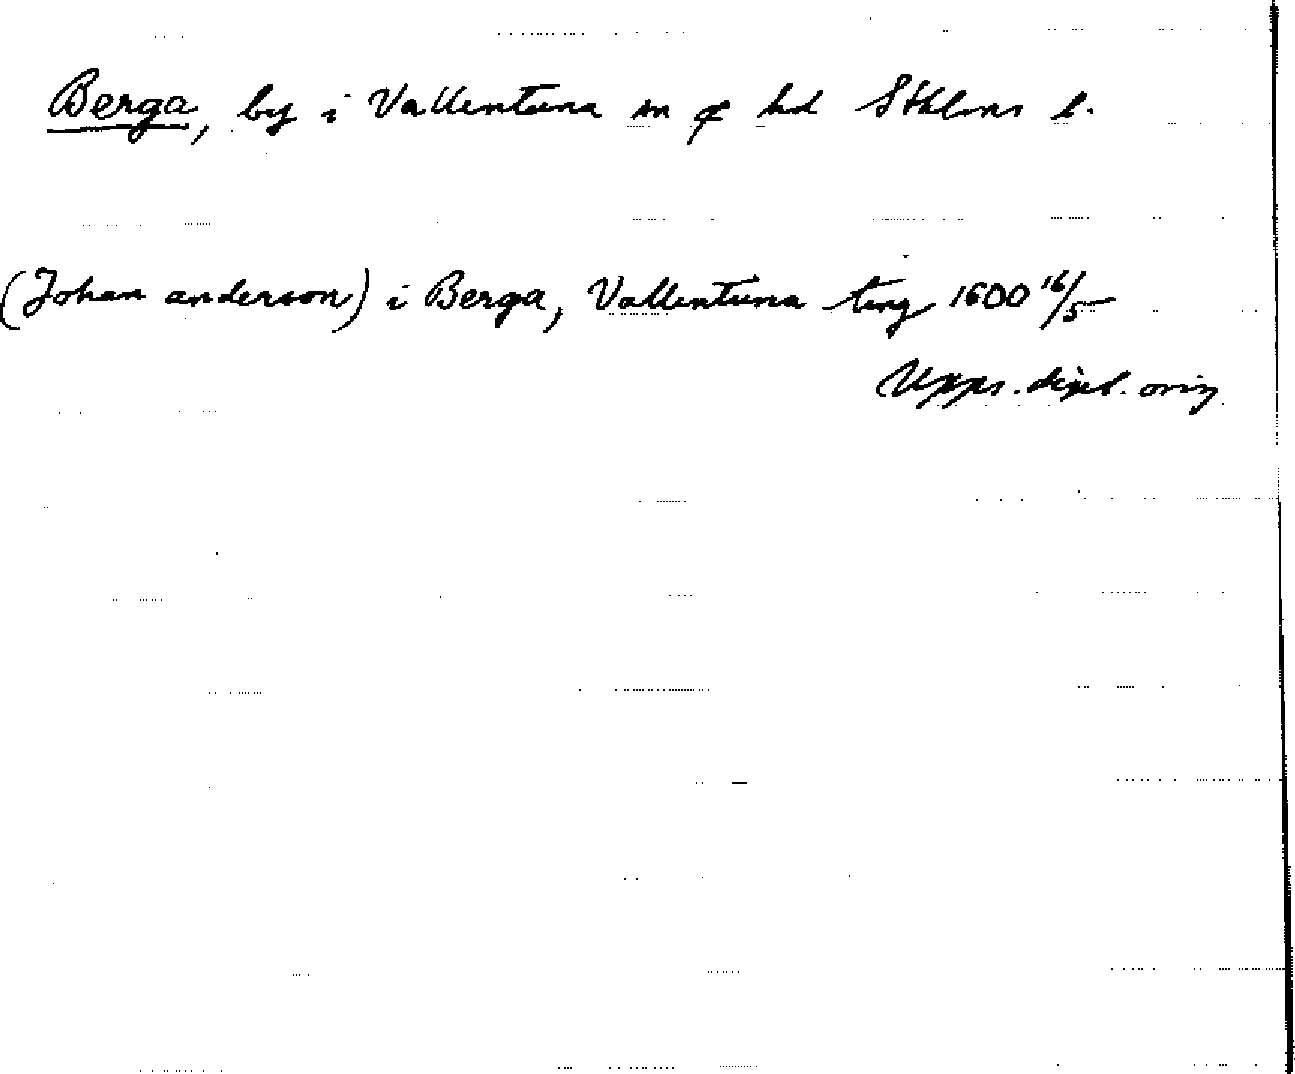 Berga, by i Vallentuna sn o hd Sthlms l.
(Johan anderson) i Berga, Vallentuna ting 1600 16/5
Upps. dipl. orig